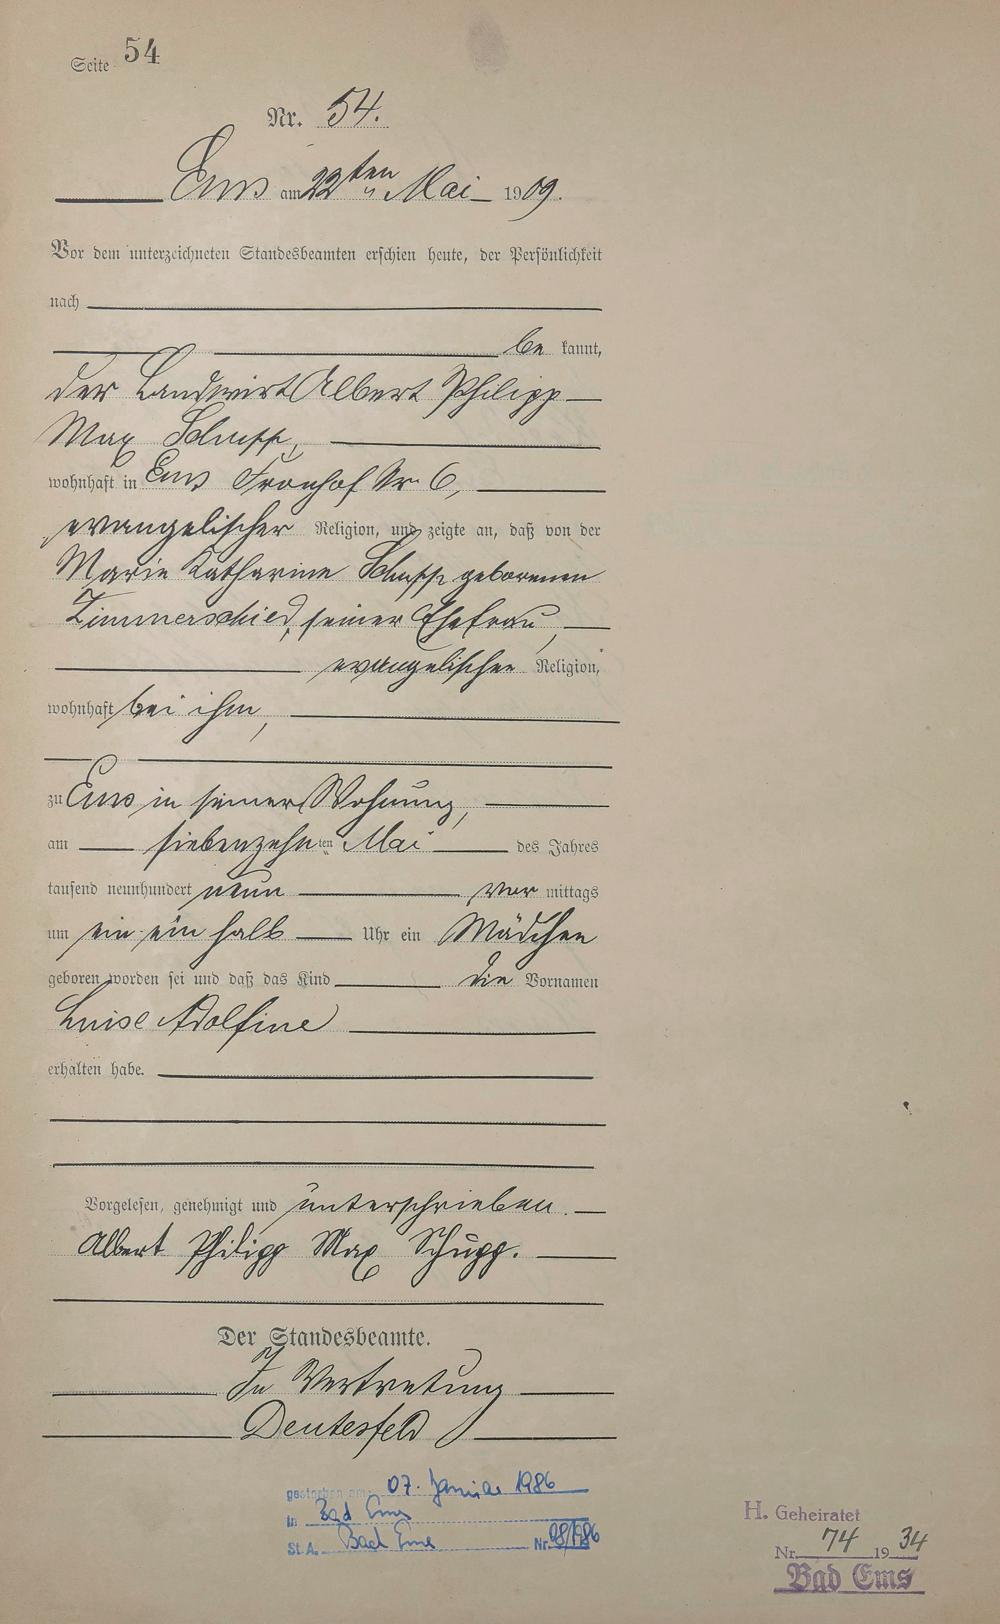 Seite 54
Nr. 54.
Ems am 22ten Mai 1909.
Vor dem unterzeichneten Standesbeamten erschien heute, der Persönlichkeit
nach
be kannt,
der Landwirt Albert Philipp
Max Schupp,
wohnhaft in Ems Fronhof Nr. 6,
evangelischer Religion, und zeigte an, daß von der
Marie Katharine Schupp geborenen
Zimmerschied, seiner Ehefrau,
evangelischer Religion,
wohnhaft bei ihm,
zu Ems in seiner Wohnung,
am siebenzehnten Mai des Jahres
tausend neunhundert neun vor mittags
um ein ein halb Uhr ein Mädchen
geboren worden sei und daß das Kind die Vornamen
Luise Adolfine
erhalten habe.
Vorgelesen, genehmigt und unterschrieben.
Albert Philipp Max Schupp.
Der Standesbeamte.
In Vertretung
Deutesfeld
gestorben am: 07. Januar 1986
in Bad Ems
St.A. Bad Ems Nr. 08/1986
H. Geheiratet
Nr. 74 1934
Bad Ems